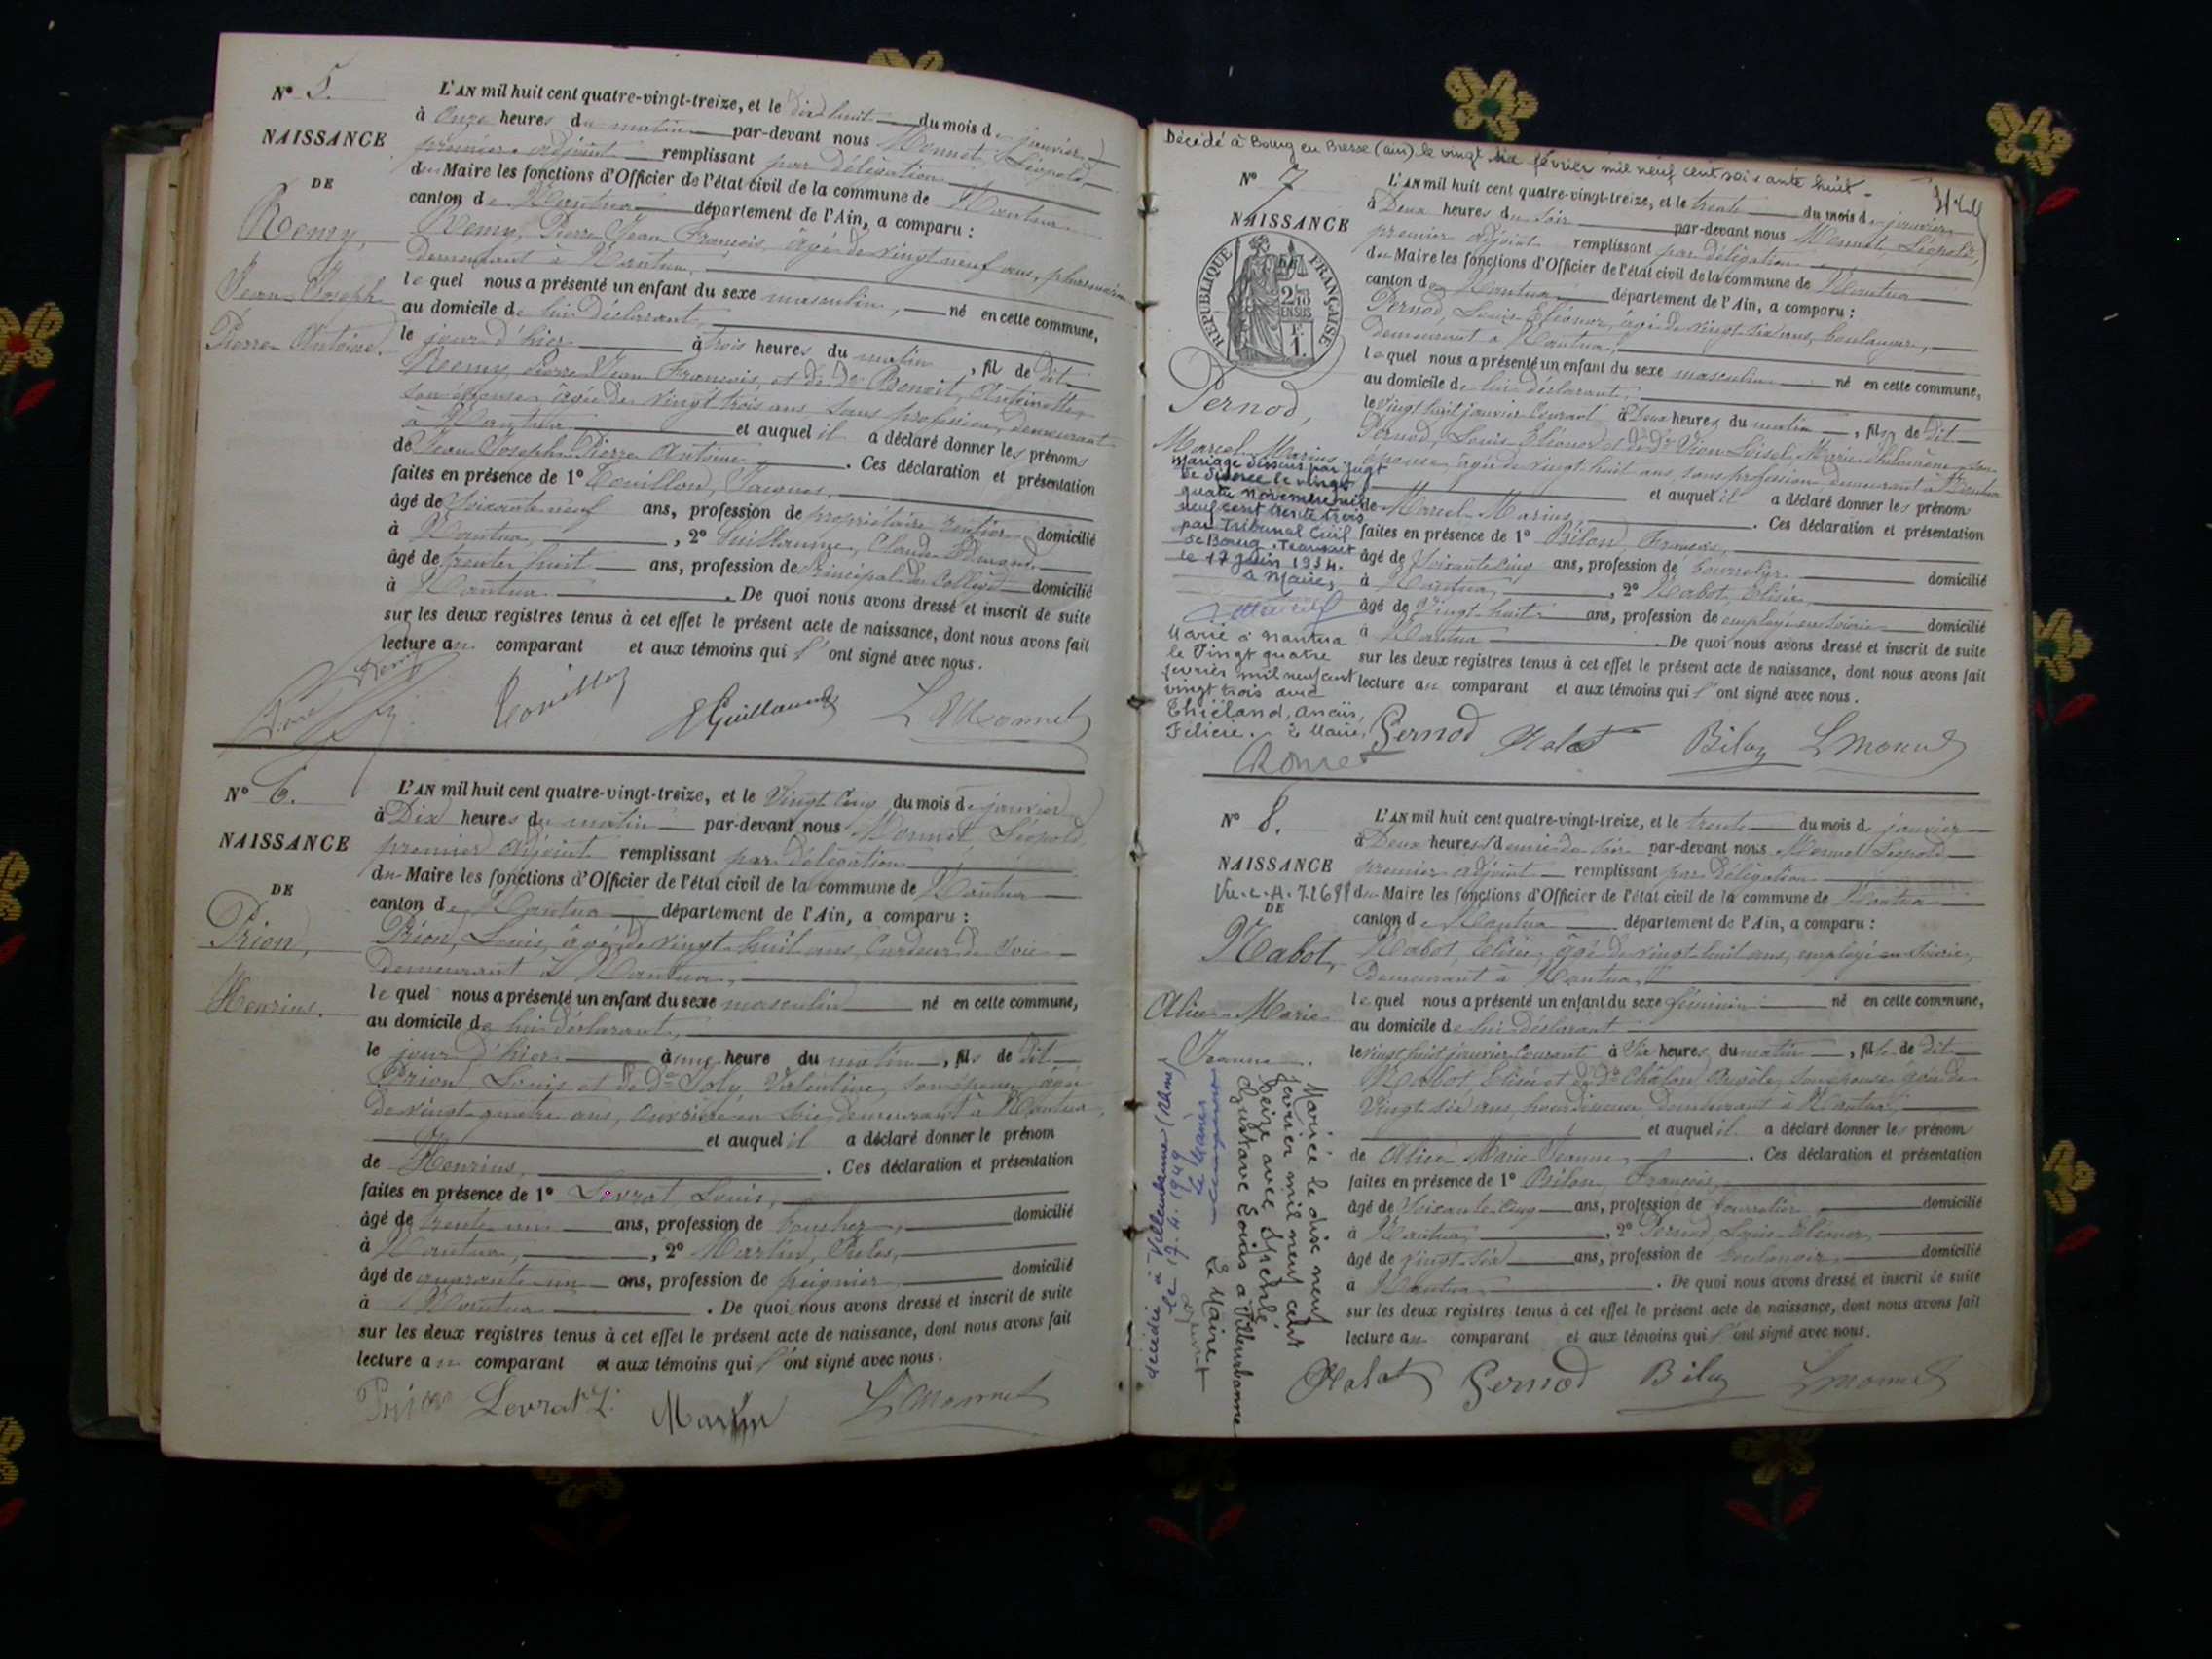 N° 5.
NAISSANCE
DE
Remy,
Jean Joseph
Pierre Antoine.
L'AN mil huit cent quatre-vingt-treize, et le dix huit du mois de janvier
à onze heures du matin par-devant nous Monnet, Léopold,
premier adjoint remplissant par délégation
du Maire les fonctions d'Officier de l'état civil de la commune de Nantua
canton de Nantua département de l'Ain, a comparu :
Remy, Pierre Jean François, âgé de vingt neuf ans, pharmacien
demeurant à Nantua,
lequel nous a présenté un enfant du sexe masculin, né en cette commune,
au domicile de lui déclarant,
le jour d'hier à trois heures du matin, fils de dit
Remy, Pierre Jean François, et de De Benoit, Antoinette,
son épouse, âgée de vingt trois ans, sans profession, demeurant
à Nantua et auquel il a déclaré donner les prénoms
de Jean Joseph Pierre Antoine. Ces déclaration et présentation
faites en présence de 1° Touillon, Jacques,
âgé de soixante neuf ans, profession de propriétaire rentier domicilié
à Nantua, 2° Guillaume, Claude
âgé de trente huit ans, profession de Principal du Collège domicilié
à Nantua. De quoi nous avons dressé et inscrit de suite
sur les deux registres tenus à cet effet le présent acte de naissance, dont nous avons fait
lecture au comparant et aux témoins qui l'ont signé avec nous.
Remy Touillon Guillaume L Monnet
N° 6.
NAISSANCE
DE
Prion,
Henrius.
L'AN mil huit cent quatre-vingt-treize, et le vingt cinq du mois de janvier
à Dix heures du matin par-devant nous Monnet, Léopold,
premier adjoint remplissant par délégation
du Maire les fonctions d'Officier de l'état civil de la commune de Nantua
canton de Nantua département de l'Ain, a comparu :
Prion, Louis, âgé de vingt huit ans, cardeur de soie
demeurant à Nantua,
lequel nous a présenté un enfant du sexe masculin né en cette commune,
au domicile de lui déclarant,
le jour d'hier à une heure du matin, fils de dit
Prion, Louis et de De Joly, Valentine, son épouse, âgée
de vingt quatre ans, ouvrière en soie, demeurant à Nantua,
et auquel il a déclaré donner le prénom
de Henrius. Ces déclaration et présentation
faites en présence de 1° Levrat Louis,
âgé de trente un ans, profession de boucher, domicilié
à Nantua, 2° Martin, Jules,
âgé de quarante un ans, profession de peignier domicilié
à Nantua. De quoi nous avons dressé et inscrit de suite
sur les deux registres tenus à cet effet le présent acte de naissance, dont nous avons fait
lecture au comparant et aux témoins qui l'ont signé avec nous.
Prion Levrat L. Martin L Monnet
Décédé à Bourg en Bresse (ain) le vingt six février mil neuf cent soixante huit
N° 7
NAISSANCE
RÉPUBLIQUE FRANÇAISE
2/10 EN SUS
1 F.
Pernod,
Marcel Marius
Mariage dissous par jugt
de divorce le vingt
quatre novembre mil
neuf cent trente trois
par Tribunal Civil
de Bourg. Transcrit
le 17 Juin 1934.
Le Maire,
Marié à Nantua
le Vingt quatre
février mil neuf cent
vingt trois avec
Thiéland, Anaïs,
Félicie. Le Maire,
L'AN mil huit cent quatre-vingt-treize, et le trente du mois de janvier
à Deux heures du soir par-devant nous Monnet, Léopold,
premier adjoint remplissant par délégation
du Maire les fonctions d'Officier de l'état civil de la commune de Nantua
canton de Nantua département de l'Ain, a comparu :
Pernod, Louis Eléonor, âgé de vingt six ans, boulanger,
demeurant à Nantua,
lequel nous a présenté un enfant du sexe masculin né en cette commune,
au domicile de lui déclarant,
le vingt huit janvier courant à Deux heures du matin, fils de dit
Pernod, Louis Eléonor et de De Vion Loisel, Marie Philomène son
épouse, âgée de vingt huit ans, sans profession demeurant à Nantua
et auquel il a déclaré donner les prénoms
de Marcel Marius. Ces déclaration et présentation
faites en présence de 1° Bilon, François,
âgé de soixante cinq ans, profession de bourrelier domicilié
à Nantua, 2° Nabot, Elisée,
âgé de vingt huit ans, profession de employé en soierie domicilié
à Nantua. De quoi nous avons dressé et inscrit de suite
sur les deux registres tenus à cet effet le présent acte de naissance, dont nous avons fait
lecture au comparant et aux témoins qui l'ont signé avec nous.
Pernod Nabot Bilon L Monnet
N° 8.
NAISSANCE
DE
Nabot,
Alice Marie
Jeanne.
Mariée le dix neuf
février mil neuf cent
seize avec
Gustave Louis à Villeurbanne
Le Maire
décédée à Villeurbanne (Rhône)
le 17.4.1949
Le Maire
L'AN mil huit cent quatre-vingt-treize, et le trente du mois de janvier
à Deux heures et demie du soir par-devant nous Monnet Léopold
premier adjoint remplissant par délégation
du Maire les fonctions d'Officier de l'état civil de la commune de Nantua
canton de Nantua département de l'Ain, a comparu :
Nabot, Elisée, âgé de vingt huit ans, employé en soierie,
demeurant à Nantua,
lequel nous a présenté un enfant du sexe féminin né en cette commune,
au domicile de lui déclarant
le vingt huit janvier courant à six heures du matin, fille de dit
Nabot, Elisée et de De Châlon, son épouse, âgée de
vingt six ans, demeurant à Nantua,
et auquel il a déclaré donner les prénoms
de Alice Marie Jeanne. Ces déclaration et présentation
faites en présence de 1° Bilon, François,
âgé de soixante cinq ans, profession de bourrelier domicilié
à Nantua, 2° Pernod, Louis Eléonor,
âgé de vingt six ans, profession de boulanger domicilié
à Nantua. De quoi nous avons dressé et inscrit de suite
sur les deux registres tenus à cet effet le présent acte de naissance, dont nous avons fait
lecture au comparant et aux témoins qui l'ont signé avec nous.
Nabot Pernod Bilon L Monnet